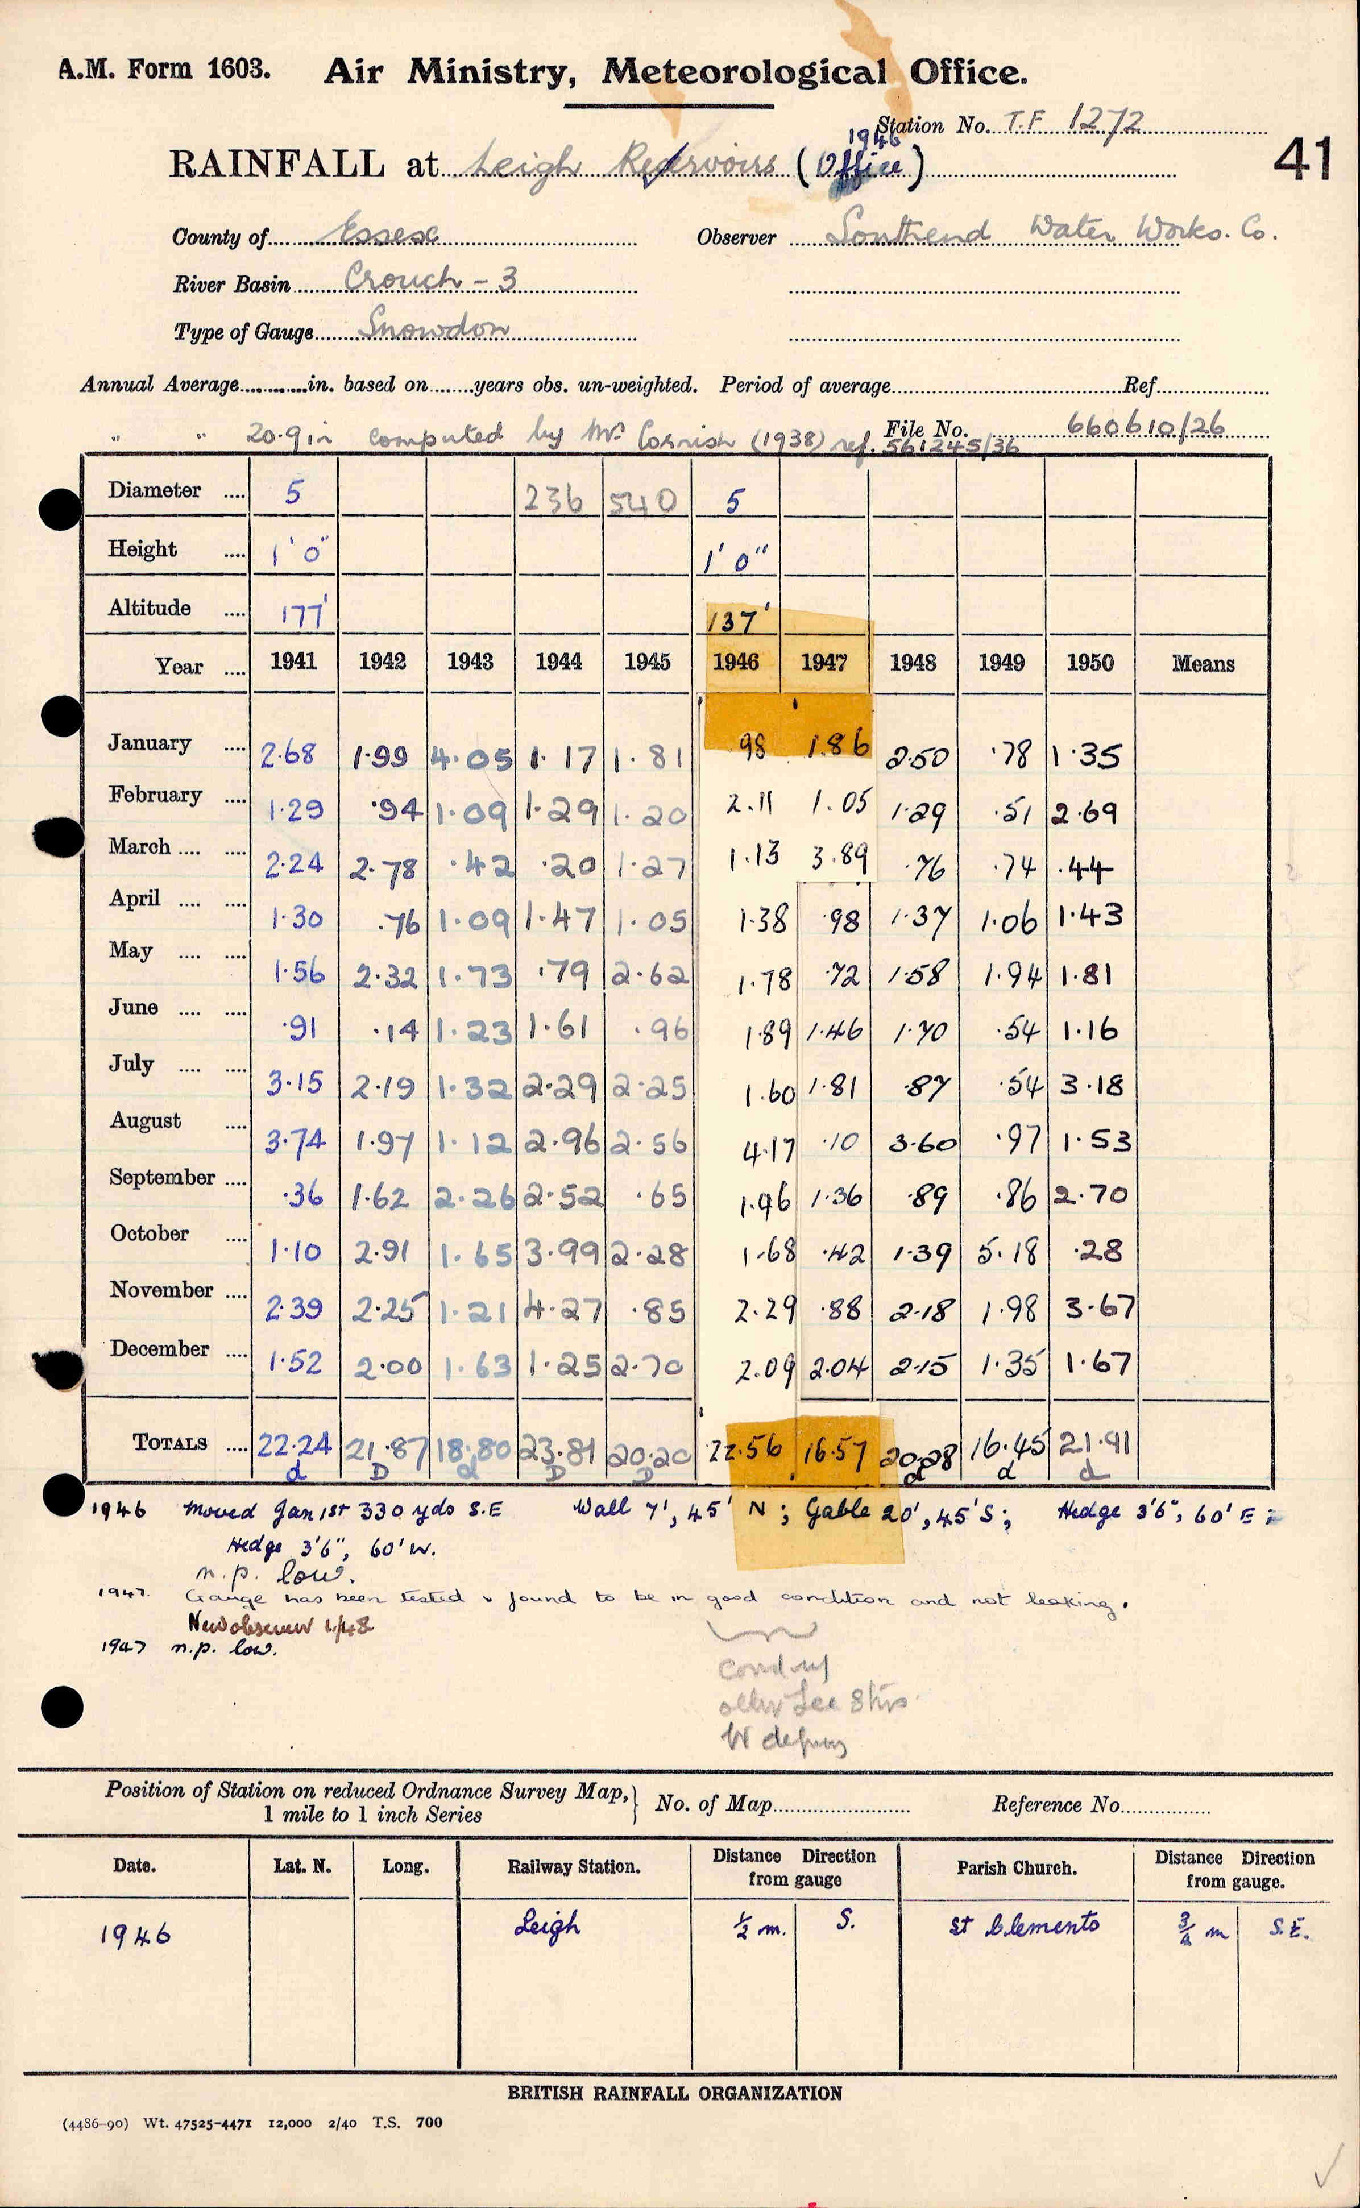 A.M. Form 1603. Air Ministry, Meteorological Office.
Station No. T.F 1272
1946
RAINFALL at Leigh Reservoirs (Office)
41
County of Essex Observer Southend Water Works. Co.
River Basin Crouch - 3
Type of Gauge Snowdon
Annual Average in. based on years obs. un-weighted. Period of average Ref
" " 20.9 in computed by Mr Cornish (1938) ref. 561245/36 File No. 660610/26
Diameter .... 5 236 540 5
Height .... 1' 0" 1' 0"
Altitude .... 177' 137'
Year .... 1941 1942 1943 1944 1945 1946 1947 1948 1949 1950 Means
January .... 2.68 1.99 4.05 1.17 1.81 98 1.86 2.50 .78 1.35
February .... 1.29 .94 1.09 1.29 1.20 2.11 1.05 1.29 .51 2.69
March .... .... 2.24 2.78 .42 .20 1.27 1.13 3.89 .76 .74 .44
April .... .... 1.30 .76 1.09 1.47 1.05 1.38 .98 1.37 1.06 1.43
May .... .... 1.56 2.32 1.73 .79 2.62 1.78 .72 1.58 1.94 1.81
June .... .... .91 .14 1.23 1.61 .96 1.89 1.46 1.70 .54 1.16
July .... .... 3.15 2.19 1.32 2.29 2.25 1.60 1.81 .87 .54 3.18
August .... 3.74 1.97 1.12 2.96 2.56 4.17 .10 3.60 .97 1.53
September .... .36 1.62 2.26 2.52 .65 1.46 1.36 .89 .86 2.70
October .... 1.10 2.91 1.65 3.99 2.28 1.68 .42 1.39 5.18 .28
November .... 2.39 2.25 1.21 4.27 .85 2.29 .88 2.18 1.98 3.67
December .... 1.52 2.00 1.63 1.25 2.70 2.09 2.04 2.15 1.35 1.67
TOTALS .... 22.24 21.87 18.80 23.81 20.20 22.56 16.57 20.28 16.45 21.91
d D d D D d d d
1946 Moved Jan 1st 330 yds S.E Wall 7', 45' N; Gable 20', 45' S; Hedge 3'6", 60' E
Hedge 3'6", 60' W.
n.p. low.
1947. Gauge has been tested & found to be in good condition and not leaking.
New observer 1/48
1947 n.p. low.
Position of Station on reduced Ordnance Survey Map, 1 mile to 1 inch Series } No. of Map Reference No.
Date. Lat. N. Long. Railway Station. Distance Direction from gauge Parish Church. Distance Direction from gauge.
1946 Leigh ½ m. S. St Clements ¾ m S.E.
BRITISH RAINFALL ORGANIZATION
(4486-90) Wt. 47525-4471 12,000 2/40 T.S. 700